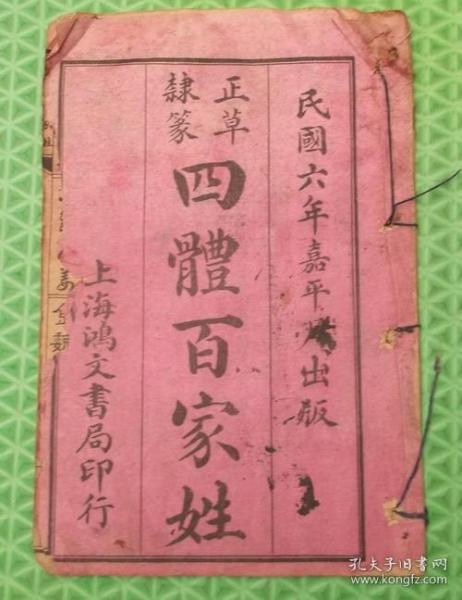 民國六年嘉平月出版
正草
隸篆
四體百家姓
上海鴻文書局印行
孔夫子旧书网
www.kongfz.com